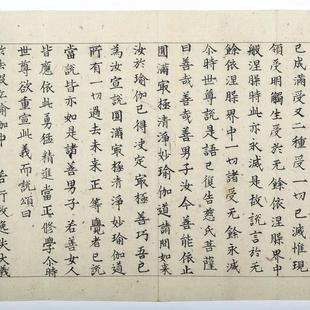 已成滿受又二種受一切已滅惟現
領受明觸生受於无餘依涅槃界中
般涅槃時此亦永滅是故說言於无
餘依涅槃界中一切諸受无餘永滅
尒時世尊說是語已復告慈氏菩薩
曰善哉善哉善男子汝今善能依止
圓滿㝡極清淨妙瑜伽道請問如來
汝於瑜伽已得决定㝡極善巧吾已
為汝宣說圓滿㝡極清淨妙瑜伽道
所有一切過去未來正等覺者已說
當說皆亦如是諸善男子若善女人
皆應依此勇猛精進當正修學尒時
世尊欲重宣此義而說頌曰
於法假立瑜伽中 若行放逸失大義